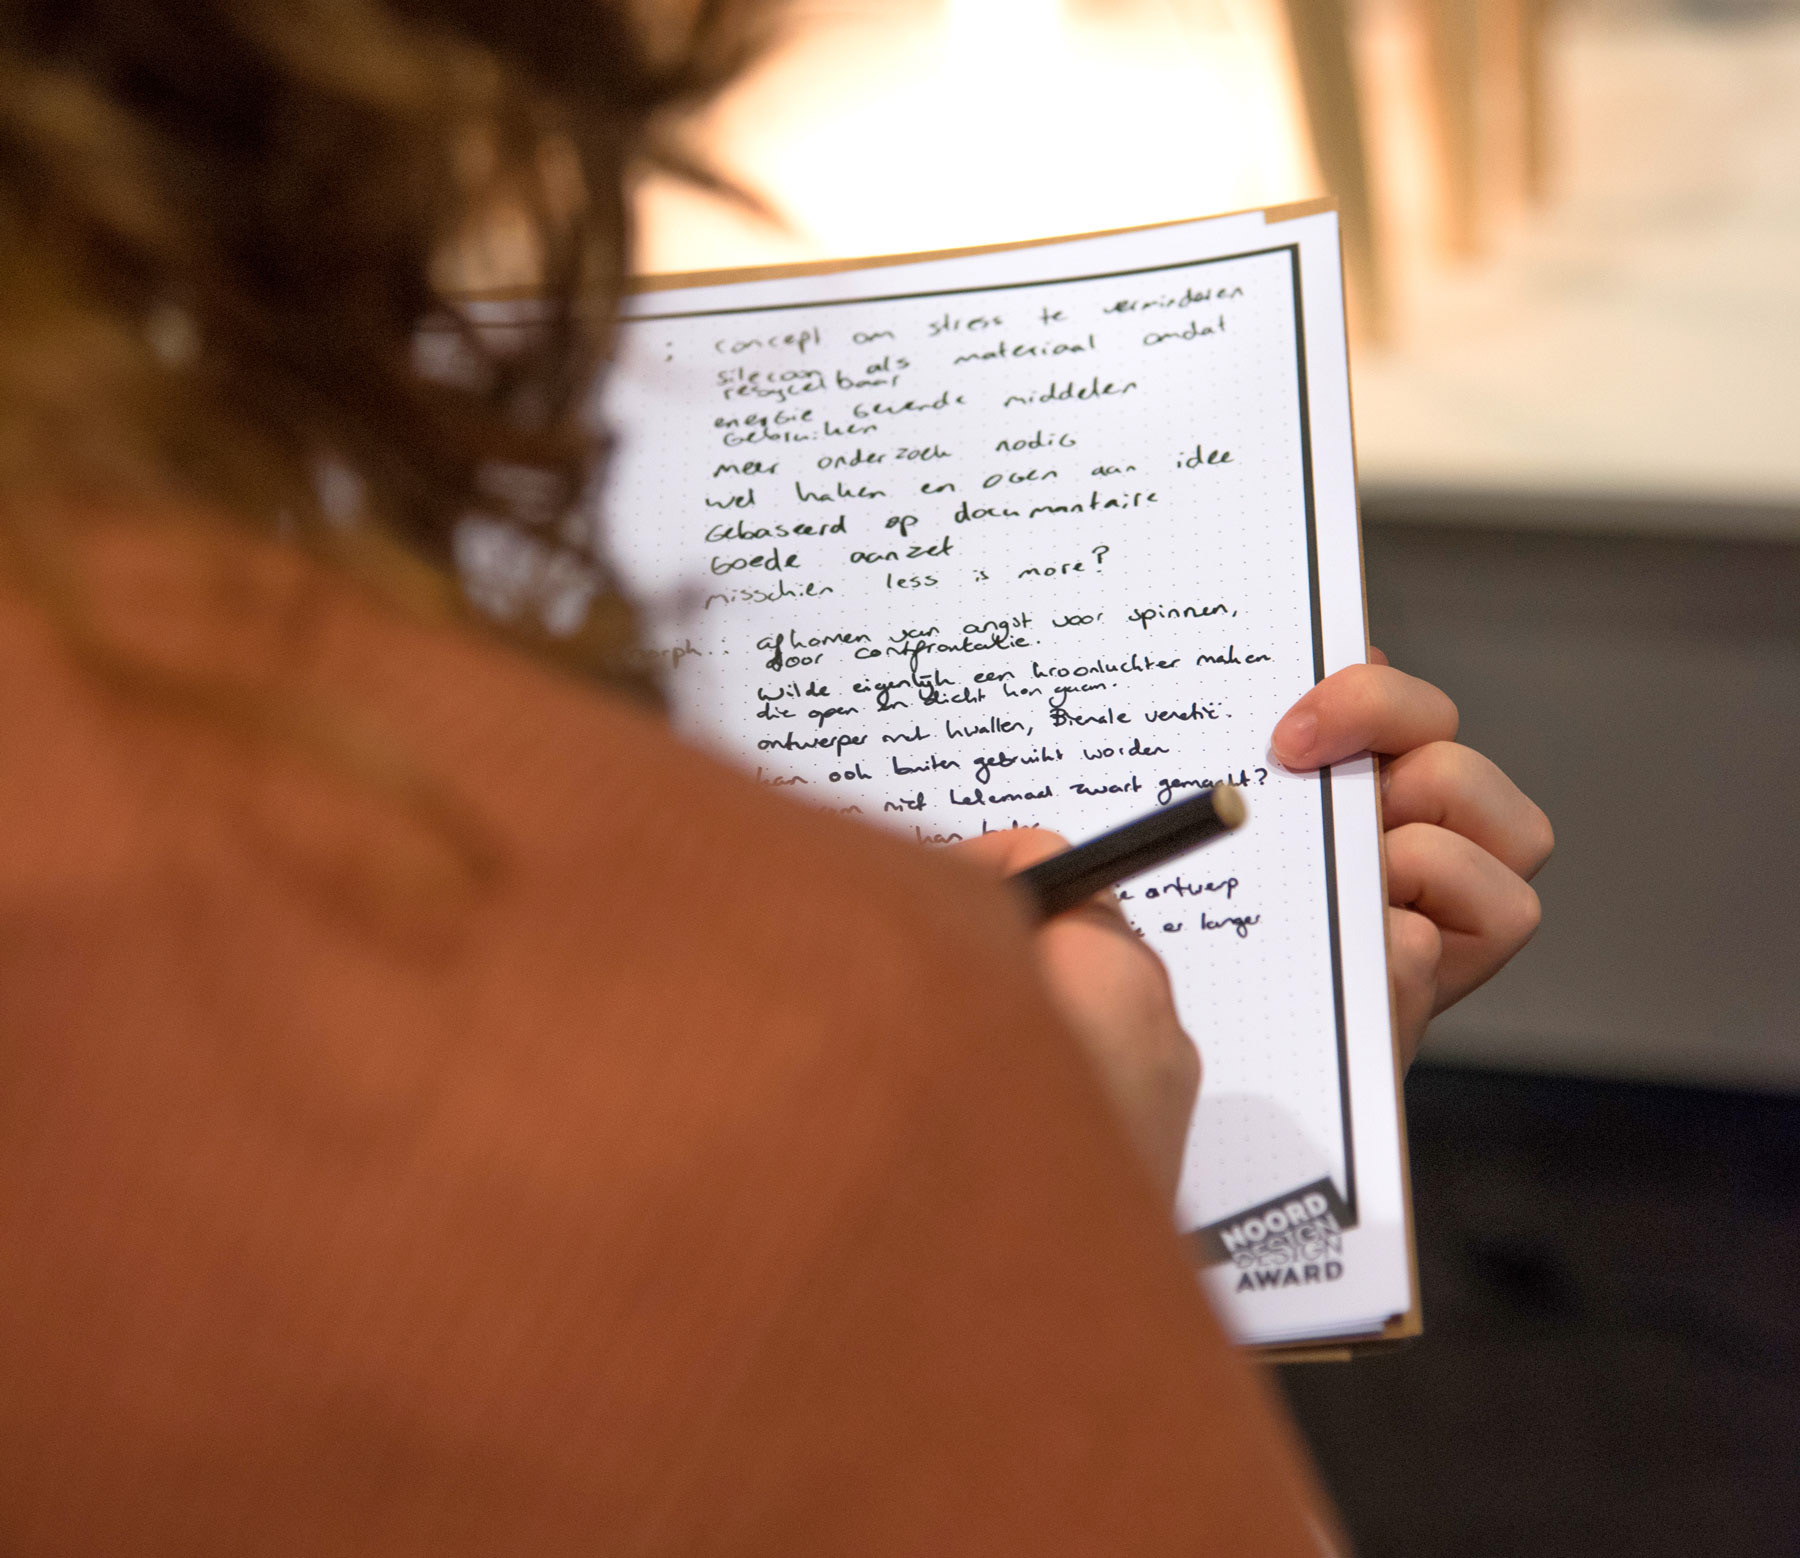 : concept om stress te verminderen
silecoon als materiaal omdat
resycelbaar
energie gevende middelen
gebruiken
meer onderzoek nodig
wel haken en ogen aan idee
Gebaseerd op documantaire
Goede aanzet
misschien less is more?
orph.: afkomen van angst voor spinnen,
door confrontatie.
wilde eigenlijk een kroonluchter maken
die open en dicht kon gaan.
ontwerper met kwallen, Bienale venetië.
kan ook buiten gebruikt worden
niet helemaal zwart gemaakt?
kan
ontwerp
er langer
NOORD
DESIGN
DESIGN
AWARD